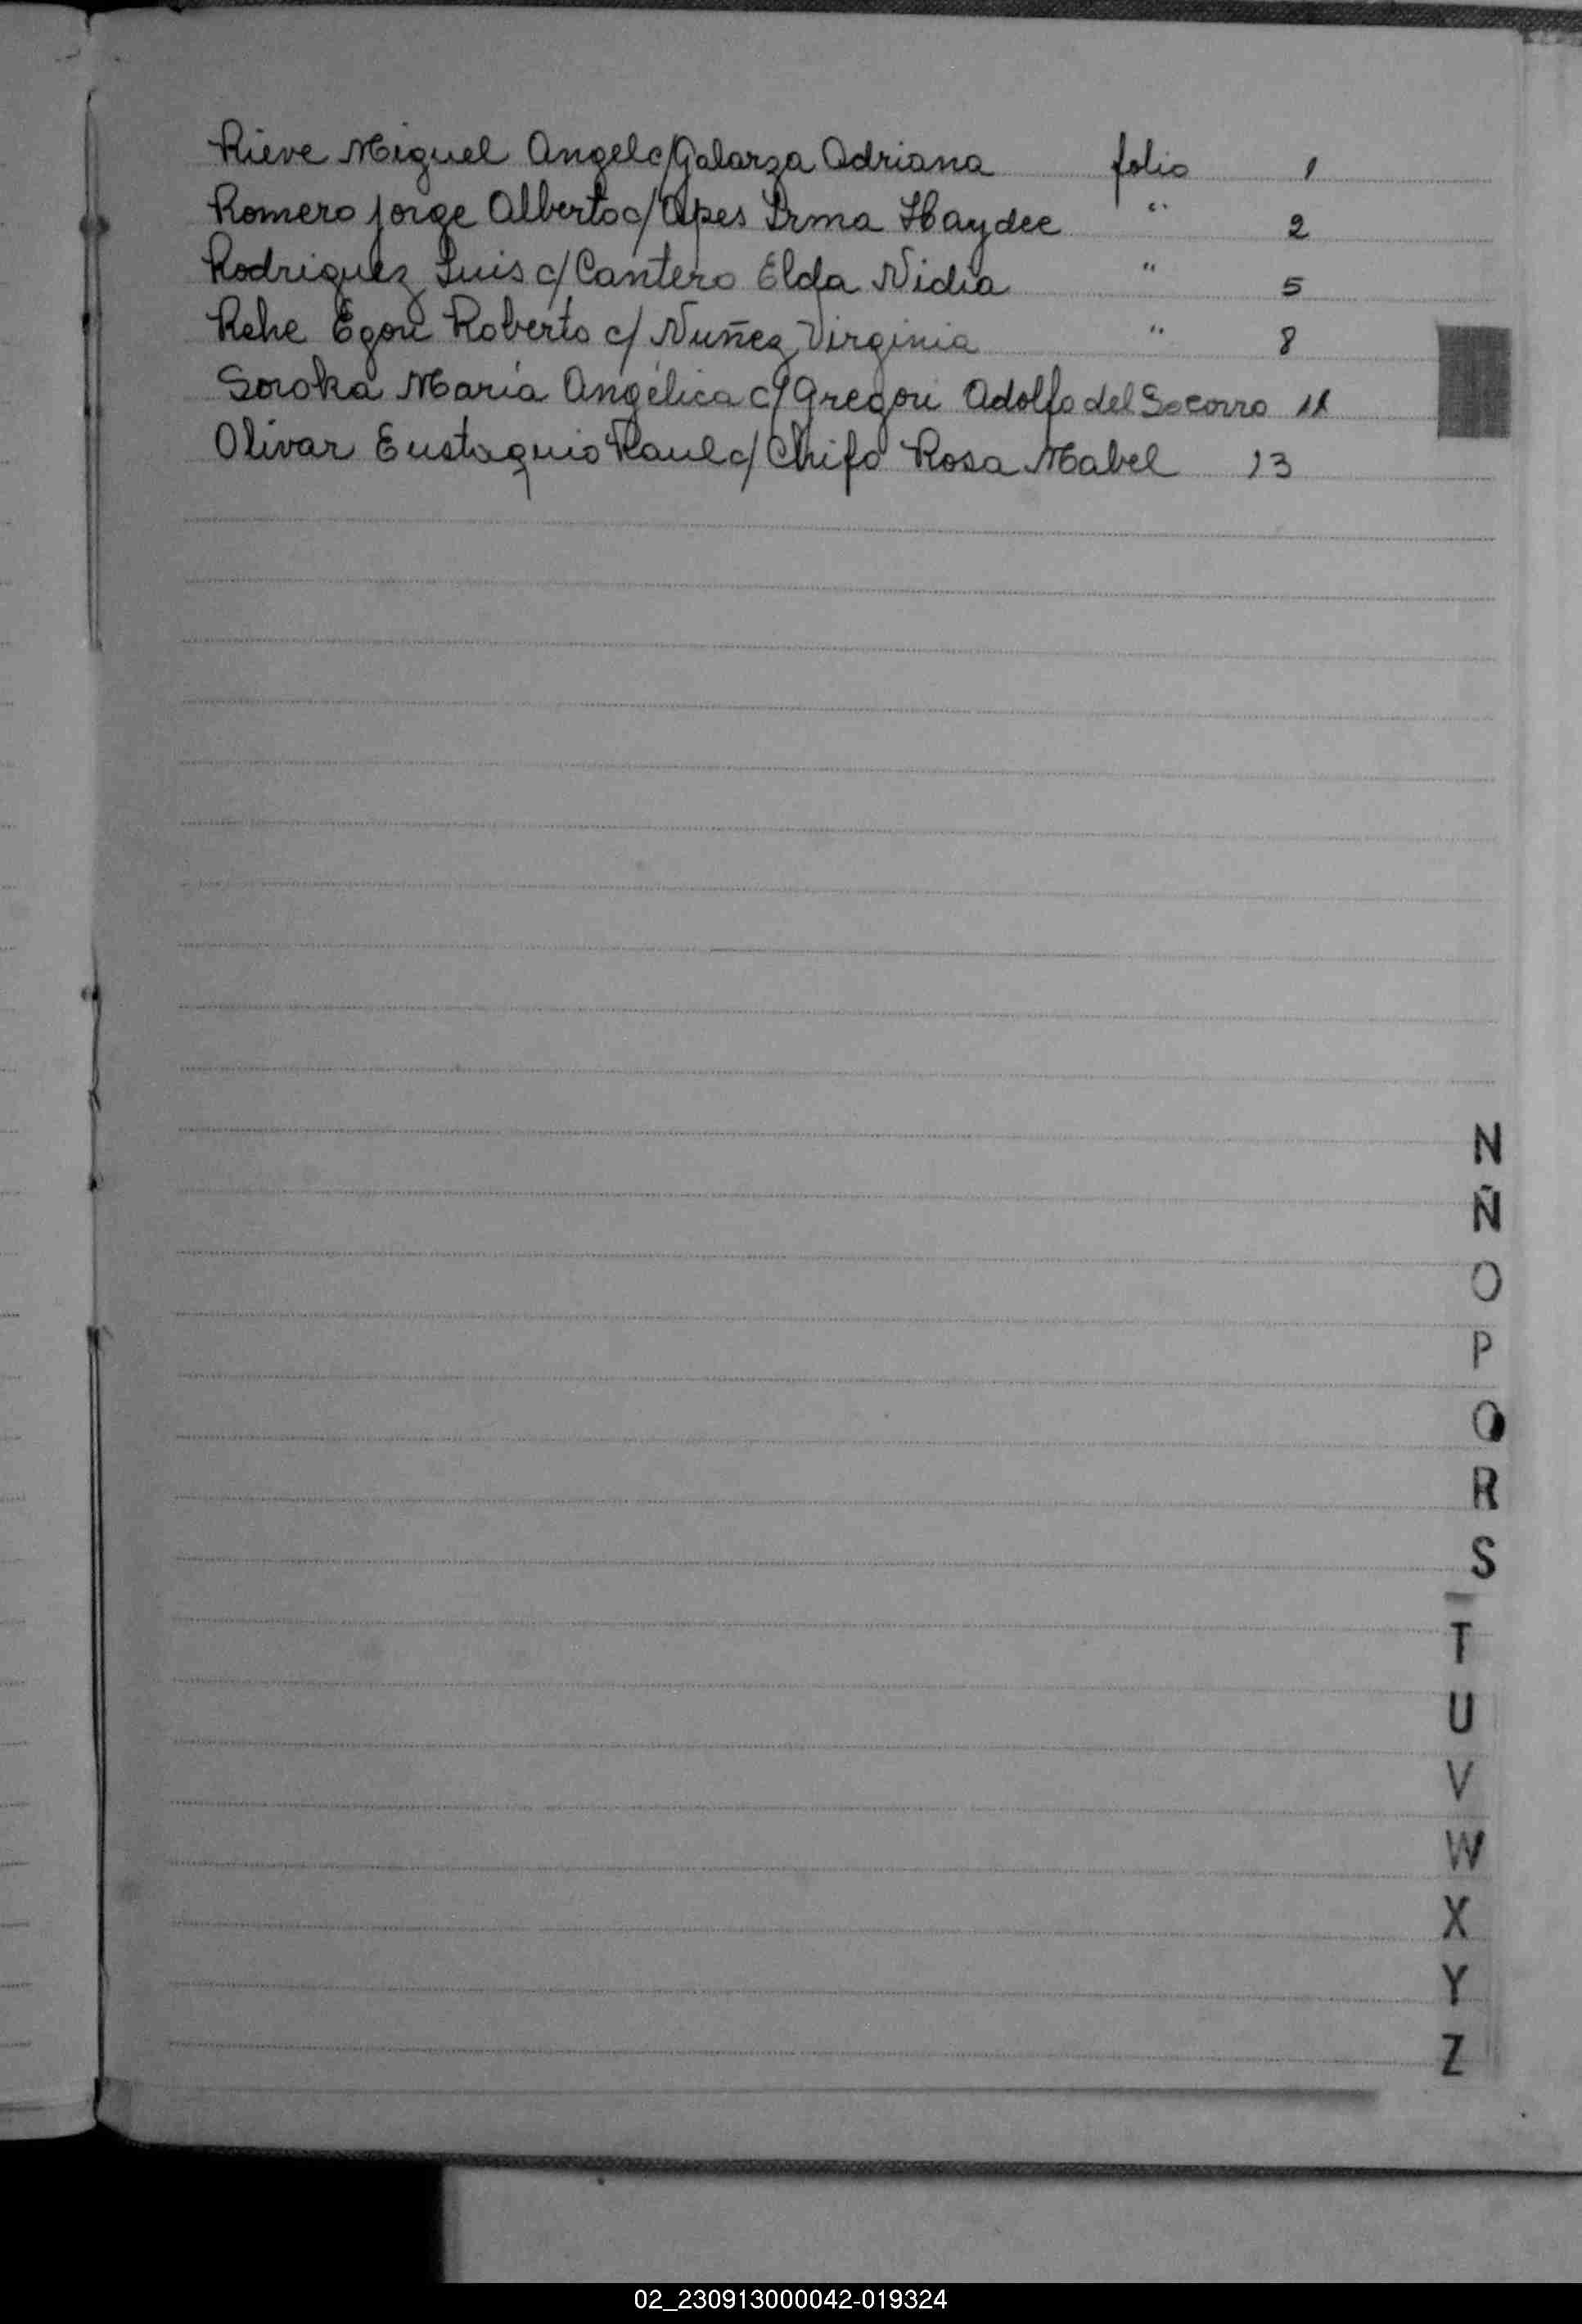 Rieve Miguel Angel c/ Galarza Adriana folio 1
Romero Jorge Alberto c/ Apes Irma Haydee " 2
Rodriguez Luis c/ Cantero Elda Nidia " 5
Rehe Egon Roberto c/ Nuñez Virginia " 8
Soroka María Angélica c/ Gregori Adolfo del Socorro 11
Olivar Eustaquio Raul c/ Chifo Rosa Mabel 13
N
Ñ
O
P
Q
R
S
T
U
V
W
X
Y
Z
02_230913000042-019324